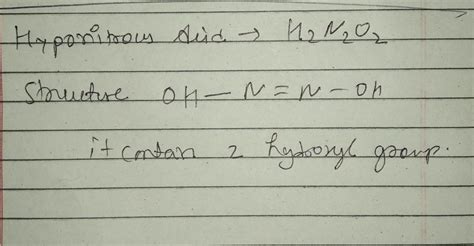 Hyponitrous Acid → H2N2O2
Structure OH — N = N — OH
it contan 2 hydroxyl group.